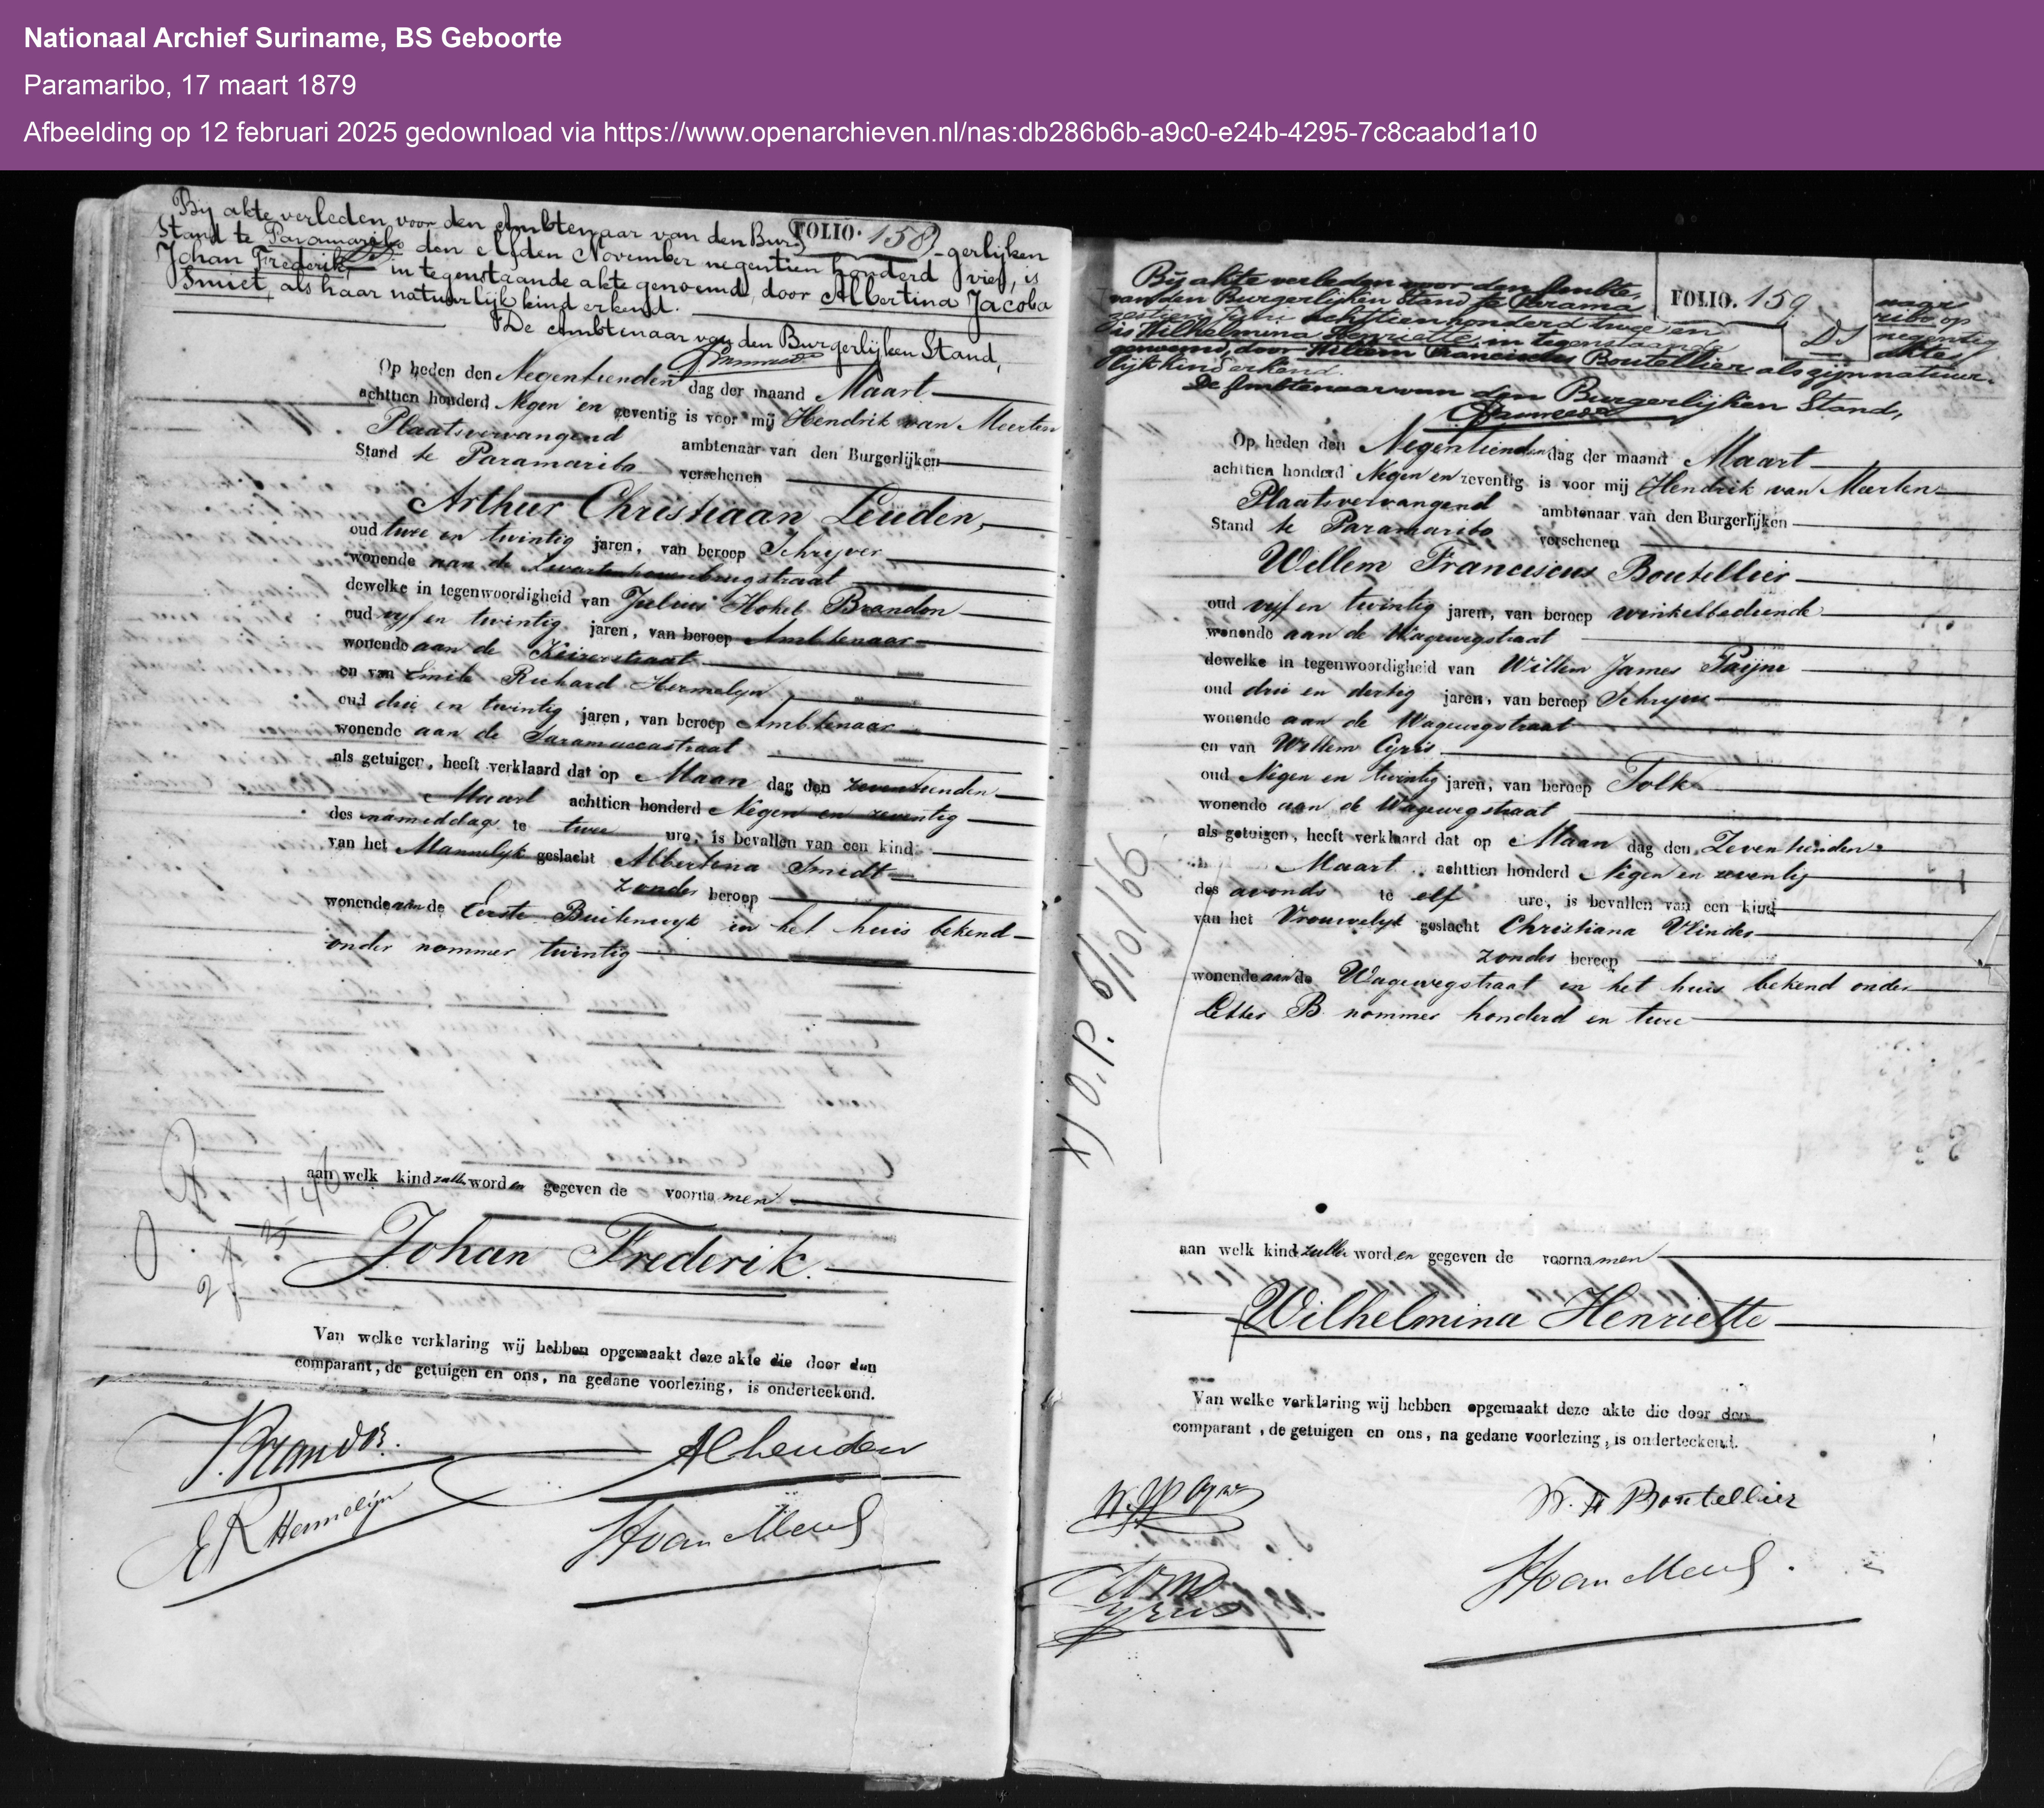 Nationaal Archief Suriname, BS Geboorte
Paramaribo, 17 maart 1879
Afbeelding op 12 februari 2025 gedownload via https://www.openarchieven.nl/nas:db286b6b-a9c0-e24b-4295-7c8caabd1a10
FOLIO. 158
Bij akte verleden voor den Ambtenaar van den Bur- -gerlijken
Stand te Paramaribo den elfden November negentien honderd vier, is
Johan Frederik, in tegenstaande akte genoemd, door Albertina Jacoba
Smiet, als haar natuurlijk kind erkend.
De Ambtenaar van den Burgerlijken Stand,
Op heden den Negentienden dag der maand Maart
achttien honderd Negen en zeventig is voor mij Hendrik van Meerten
Plaatsvervangend ambtenaar van den Burgerlijken
Stand te Paramaribo verschenen
Arthur Christiaan Leuden,
oud twee en twintig jaren, van beroep Schryver
wonende aan de Zwartenhovenbrugstraat
dewelke in tegenwoordigheid van Julius Hokel Brandon
oud vyf en twintig jaren, van beroep Ambtenaar
wonende aan de Keizerstraat
en van Emile Richard Hermelyn
oud drie en twintig jaren, van beroep Ambtenaar
wonende aan de Saramaccastraat
als getuigen, heeft verklaard dat op Maan dag den zeventienden
Maart achttien honderd Negen en zeventig
des namiddags te twee ure, is bevallen van een kind
van het Mannelyk geslacht Albertina Smidt
zonder beroep
wonende aan de Eerste Buitenwyk in het huis bekend
onder nommer twintig
aan welk kind zullen worden gegeven de voornamen
Johan Frederik.
Van welke verklaring wij hebben opgemaakt deze akte die door den
comparant, de getuigen en ons, na gedane voorlezing, is onderteekend.
J. Brandon.
ACLeuden
ER Hermelijn
HvanMeerten
FOLIO. 159
Bij akte verleden voor den Ambte-naar
van den Burgerlijken Stand te Parama-ribo op
zestien Juni achttienhonderd twee en negentig
is Wilhelmina Henriette, in tegenstaande akte
genoemd, door Willem Franciscus Boutellier als zijn natuur-
lijk kind erkend.
De Ambtenaar van den Burgerlijken Stand,
Op heden den Negentienden dag der maand Maart
achttien honderd Negen en zeventig is voor mij Hendrik van Meerten
Plaatsvervangend ambtenaar van den Burgerlijken
Stand te Paramaribo verschenen
Willem Franciscus Boutellier
oud vyf en twintig jaren, van beroep winkelbediende
wonende aan de Wagewegstraat
dewelke in tegenwoordigheid van Willem James Paijne
oud drie en dertig jaren, van beroep Schryver
wonende aan de Wagewegstraat
en van Willem Cyrus
oud Negen en twintig jaren, van beroep Tolk
wonende aan de Wagewegstraat
als getuigen, heeft verklaard dat op Maan dag den Zeventienden
Maart achttien honderd Negen en zeventig
des avonds te elf ure, is bevallen van een kind
van het Vrouwelyk geslacht Christiana Vlinder
zonder beroep
wonende aan de Wagewegstraat in het huis bekend onder
Letter B nommer honderd en twee
x) O.P. 6/10/'66
aan welk kind zullen worden gegeven de voornamen
Wilhelmina Henriette
Van welke verklaring wij hebben opgemaakt deze akte die door den
comparant, de getuigen en ons, na gedane voorlezing, is onderteekend.
W. F Boutellier
HvanMeerten